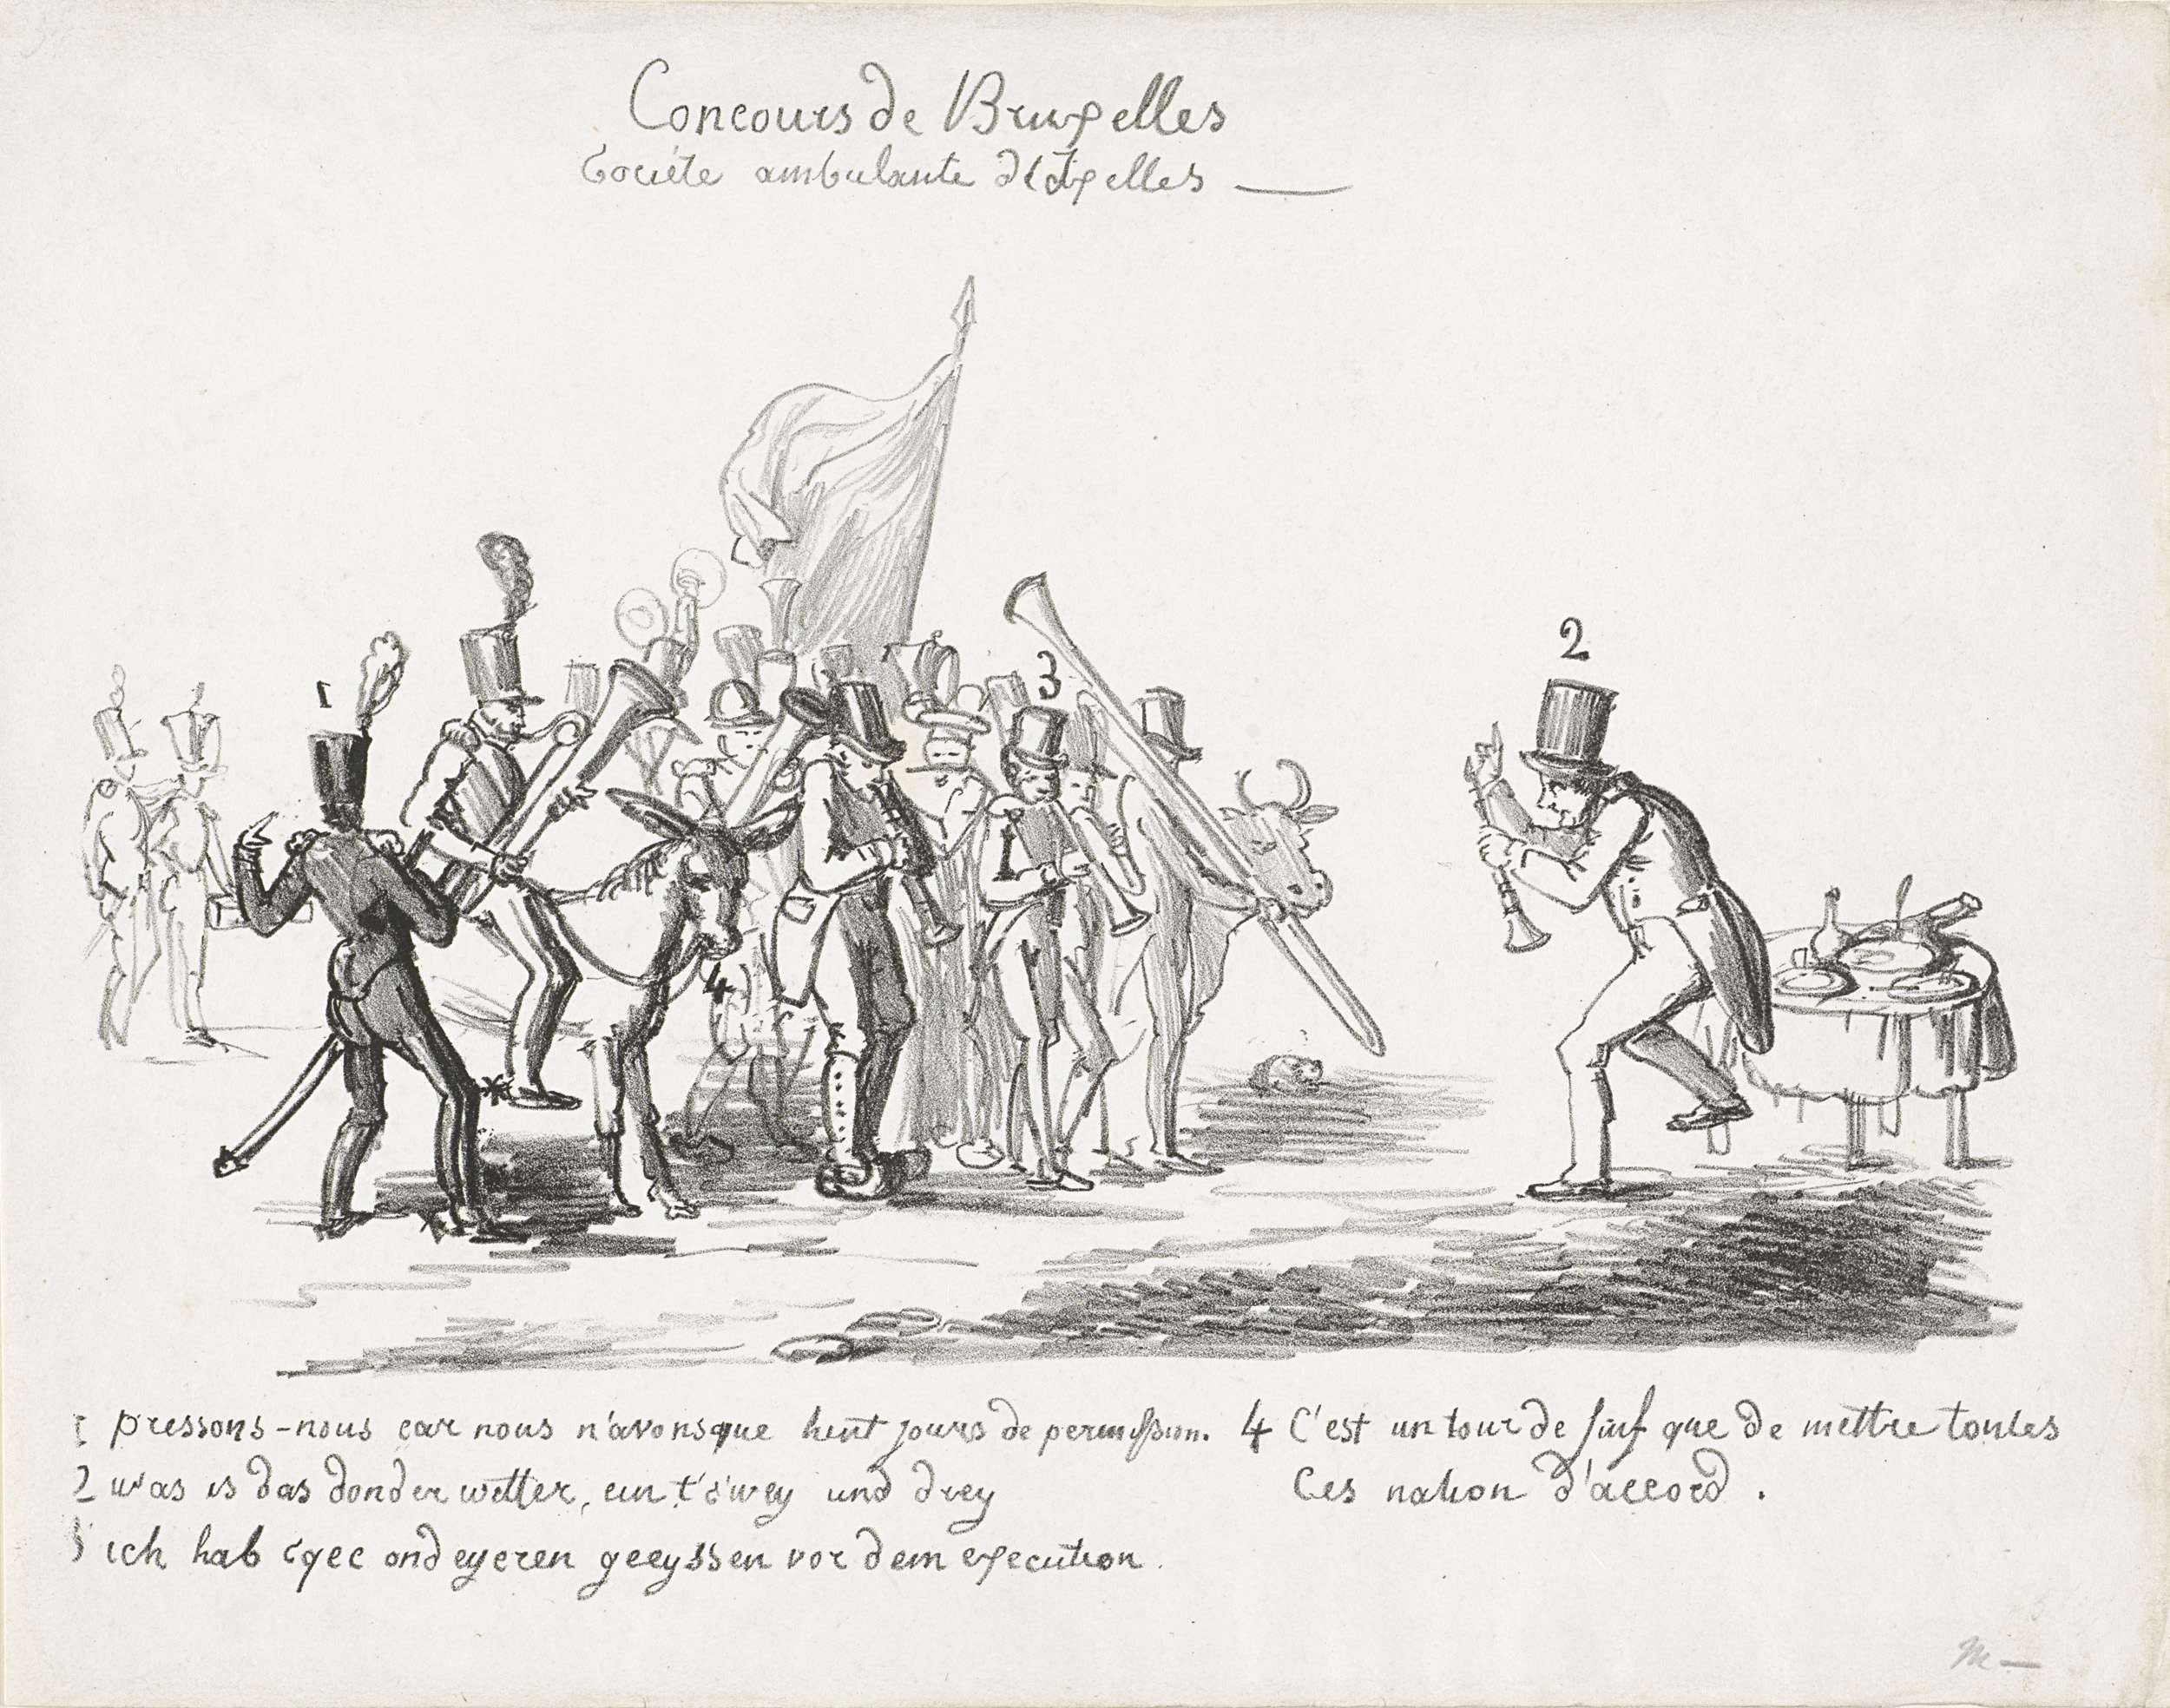 Concours de Bruxelles
Société ambulante d'Ixelles —
1
2
3
4
1 pressons-nous car nous n'avons que huit jours de permission.
2 was is das donder wetter, ein t's'wey und drey
3 ich hab ond eyeren geeyssen vor dem execution.
4 C'est un tour de juif que de mettre toutes
Ces nation d'accord.
M—